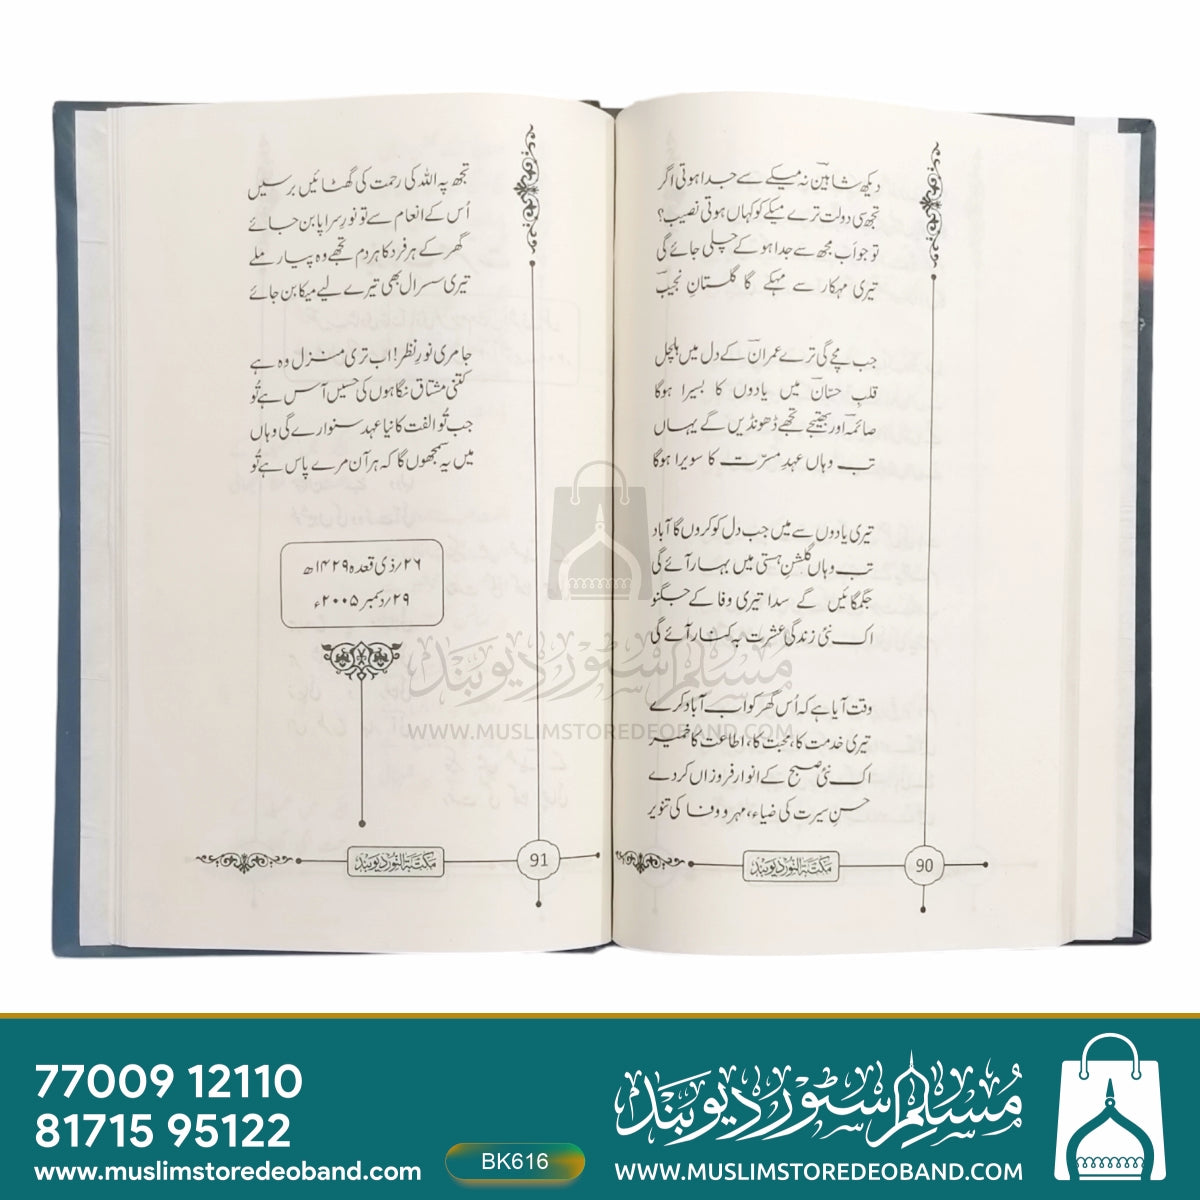 دیکھ شاہینؔ نہ میکے سے جدا ہوتی اگر
تجھ سی دولت ترے میکے کو کہاں ہوتی نصیب؟
تو جو اب مجھ سے جدا ہو کے چلی جائے گی
تیری مہکار سے مہکے گا گلستانِ نجیبؔ
جب مچے گی ترے عمرانؔ کے دل میں ہلچل
قلبِ حنانؔ میں یادوں کا بسیرا ہوگا
صائمہؔ اور بھتیجے تجھے ڈھونڈیں گے یہاں
تب وہاں عہدِ مسرّت کا سویرا ہوگا
تیری یادوں سے میں جب دل کو کروں گا آباد
تب وہاں گلشنِ ہستی میں بہار آئے گی
جگمگائیں گے سدا تیری وفا کے جگنو
اک نئی زندگی عشرت پہ کنار آئے گی
وقت آیا ہے کہ اُس گھر کو اب آباد کرے
تیری خدمت کا، محبت کا، اطاعت کا خمیر
اک نئی صبح کے انوار فروزاں کر دے
حسنِ سیرت کی ضیاء، مہر و وفا کی تنویر
مکتبۃ النور دیوبند
90
تجھ پہ اللہ کی رحمت کی گھٹائیں برسیں
اُس کے انعام سے تو نورِ سراپا بن جائے
گھر کے ہر فرد کا ہر دم تجھے وہ پیار ملے
تیری سسرال بھی تیرے لیے میکا بن جائے
جا مری نورِ نظر! اب تری منزل وہ ہے
کتنی مشتاق نگاہوں کی حسیں آس ہے تُو
جب تُو الفت کا نیا عہد سنوارے گی وہاں
میں یہ سمجھوں گا کہ ہر آن مرے پاس ہے تُو
۲۶؍ذی قعدہ ۱۴۲۹ھ
۲۹؍دسمبر ۲۰۰۵ء
مکتبۃ النور دیوبند
91
مسلم سٹور دیوبند
WWW.MUSLIMSTOREDEOBAND.COM
77009 12110
81715 95122
www.muslimstoredeoband.com
BK616
مسلم سٹور دیوبند
WWW.MUSLIMSTOREDEOBAND.COM